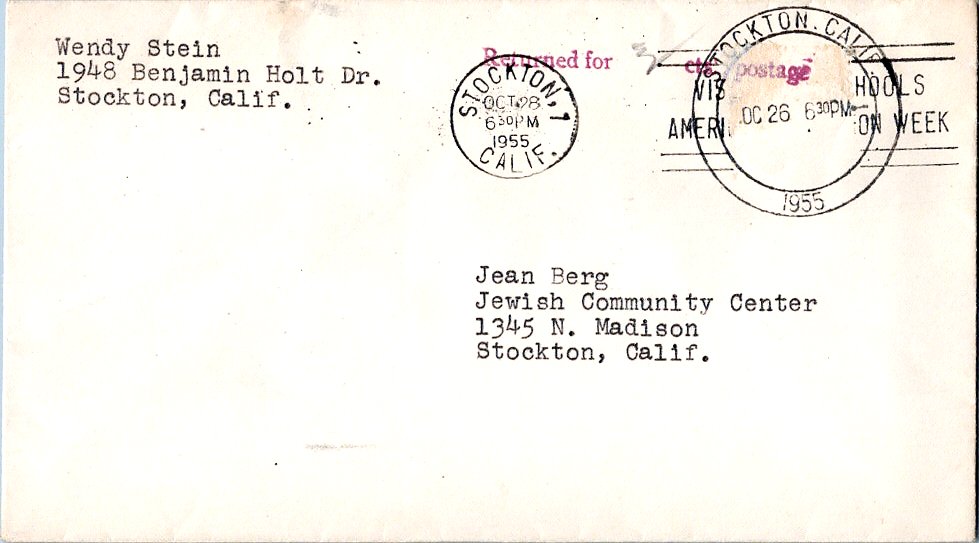 Wendy Stein
1948 Benjamin Holt Dr.
Stockton, Calif.
Returned for 3 cts postage
STOCKTON, 1
OCT 28
6 30 PM
1955
CALIF.
STOCKTON. CALIF
OC 26 6 30 PM
1955
VIS HOOLS
AMERI ON WEEK
Jean Berg
Jewish Community Center
1345 N. Madison
Stockton, Calif.